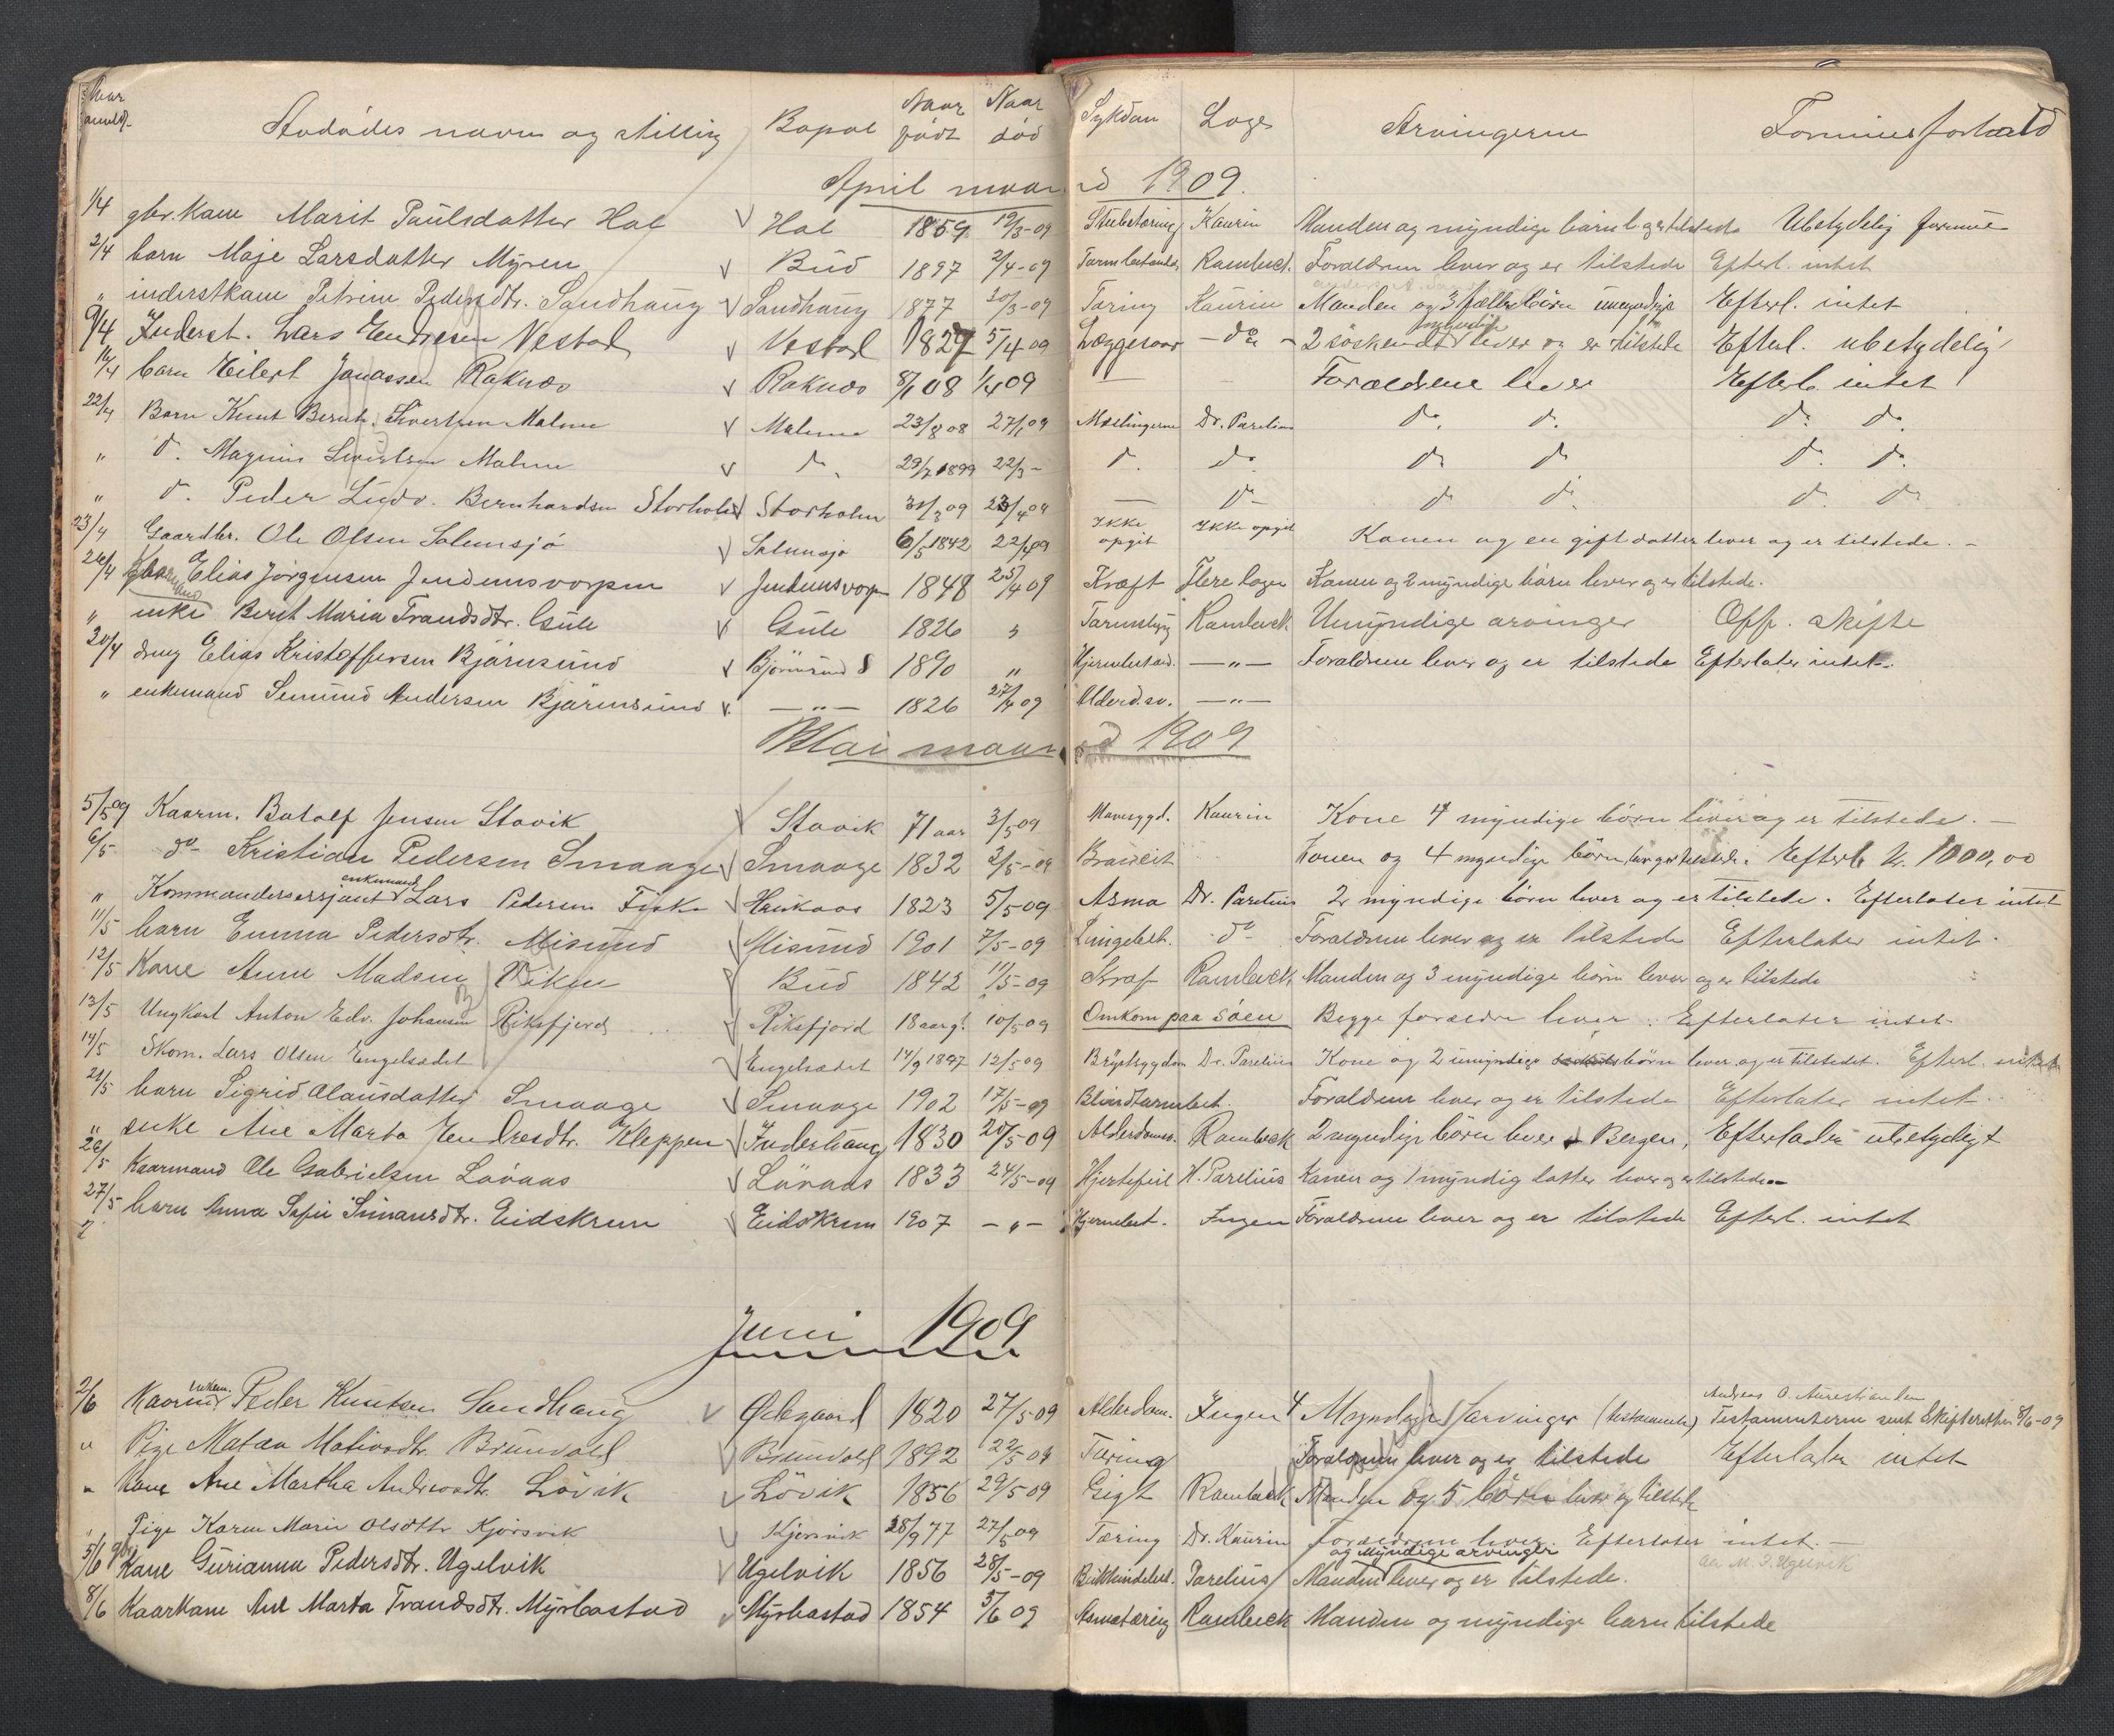 Naar anmeldt Avdödes navn og stilling Bopæl Naar född Naar död Sykdom Læge Arvingerne Formuesforhold
April maaned 1909.
1/4 gbr. kane Marit Paulsdatter Hol Hol 1859 19/3-09 Kaurin Manden og myndige börn Ubetydelig formue
2/4 barn Maje Larsdatter Myren Bud 1897 2/4-09 Rambeck Forældrene lever og er tilstede Efterl. intet
" inderstkane Petrine Pedersdtr. Sandhaug Sandhaug 1877 20/3-09 Tæring Kaurin Manden og 3 fælles börn umyndige Efterl. intet
9/4 Inderst. Lars Endresen Vestad Vestad 1827 5/4 09 Læggesaar - do - 2 söskende myndige lever og er tilstede Efterl. ubetydelig
16/4 barn Eilert Jonassen Raknes Raknes 8/1 08 1/4 09 — Forældrene lever Efterl. intet
22/4 Barn Knut Bernh. Sivertsen Malme Malme 23/8 08 27/1 09 Mæslingerne Dr. Parelius do. do. do. do.
" do. Magnus Sivertsen Malme do. 29/7 1899 22/3 - do. do do do do. do.
" do. Peder Ludv. Bernhardsen Storholm Storholm 31/3 09 23/4 09 — do - do do. do. do
23/4 Gaardbr. Ole Olsen Solemsjö Solemsjö 6/5 1842 22/4 09 Ikke opgit Ikke opgit Konen og en gift datter lever og er tilstede. -
26/4 Elias Jörgensen Jendemsvorpen Jendemsvorp 1848 25/4 09 Kræft Flere læger Konen og 2 myndige börn lever og er tilstede.
" enke Berit Maria Trondsdtr. Gule Gule 1826 " Rambeck Umyndige arvinger Off. skifte
30/4 dreng Elias Kristoffersen Björnsund Björnsund S 1890 " — " — Forældrene lever og er tilstede Efterlater intet.
" enkemand Semund Andersen Björnsund — " — 1826 27/4 09 Alderd.sv. — " —
Mai maaned 1909
5/5 09 Kaarm. Botolf Jensen Stavik Stavik 71 aar 3/5 09 Mavesygd. Kaurin Kone 4 myndige börn lever og er tilstede. -
6/5 do - Kristian Pedersen Smaage Smaage 1832 3/5-09 Kone og 4 myndige börn lever og er tilstede. Efterl. kr. 1000,00
" Kommandersersjant enkemand Lars Pedersen Haukaas 1823 5/5 09 Asma Dr. Parelius 2 myndige börn lever og er tilstede. Efterlater intet
11/5 barn Emma Pedersdtr. Misund Misund 1901 7/5-09 Lungebet. do - Forældrene lever og er tilstede Efterlater intet.
12/5 Kone Anne Madsen Viken Bud 1842 11/5-09 Rambeck Manden og 3 myndige börn lever og er tilstede
13/5 Ungkarl Anton Edv. Johansen Riksfjord Riksfjord 18 aar g. 10/5 09 Omkom paa söen Begge forældre lever. Efterlater intet-
14/5 Skom. Lars Olsen Engelsædet Engelsædet 14/9 1897 12/5 09 Brystsygdom Dr. Parelius Kone og 2 umyndige börn lever og er tilstedet. Efterl. intet
21/5 barn Sigrid Olausdatter Smaage Smaage 1902 17/5-09 Blindtarmbet. Forældrene lever og er tilstede Efterlater intet.
" enke Ane Marta Hendresdtr. Kleppen Inderhaug 1830 20/5-09 Alderdomssv. Rambeck 2 myndige börn lever i Bergen, Efterlader ubetydeligt
26/5 Kaarmand Ole Gabrielsen Lövaas Lövaas 1833 24/5-09 Hjertefeil H. Parelius Konen og 1 myndig datter lever og er tilstede -
27/5 barn Anna Sofie Simonsdtr. Eidskrem Eidskrem 1907 - " - Hjernebet. Ingen Forældrene lever og er tilstede Efterl. intet
Juni 1909
2/6 Kaarm. enkem. Peder Knutsen Sandhaug Ödegaard 1820 27/5-09 Alderdom. Ingen 4 Myndige arvinger (testamente) Testamenterne sent Skifteretten 8/6-09
" Pige Matea Mativsdtr. Brundall Brundall 1892 22/5 09 Tæring Forældrene lever og er tilstede Efterlater intet
" Kone Ane Martha Andreasdtr. Lövik Lövik 1856 29/5 09 Gigt Rambeck Manden og 5 börn lever og tilstede
" Pige Karen Marie Olsdtr. Kjörsvik Kjörsvik 28/9 77 27/5 09 Tæring Dr. Kaurin Forældrene lever. Efterlater intet. -
5/6 gbr. Kane Gurianna Pedersdtr. Ugelvik Ugelvik 1856 28/5-09 Parelius Manden og myndige arvinger lever og er tilstede. M. P. Ugelvik
8/6 Kaarkane Ane Marta Trondsdtr. Myrbostad Myrbostad 1854 5/6 09 Rambeck Manden og myndige barn tilstede